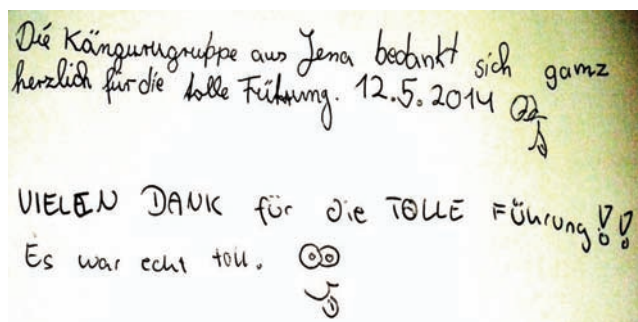 Die Kängurugruppe aus Jena bedankt sich ganz
herzlich für die tolle Führung. 12.5.2014
VIELEN DANK für die TOLLE FÜhrung!!
Es war echt toll.